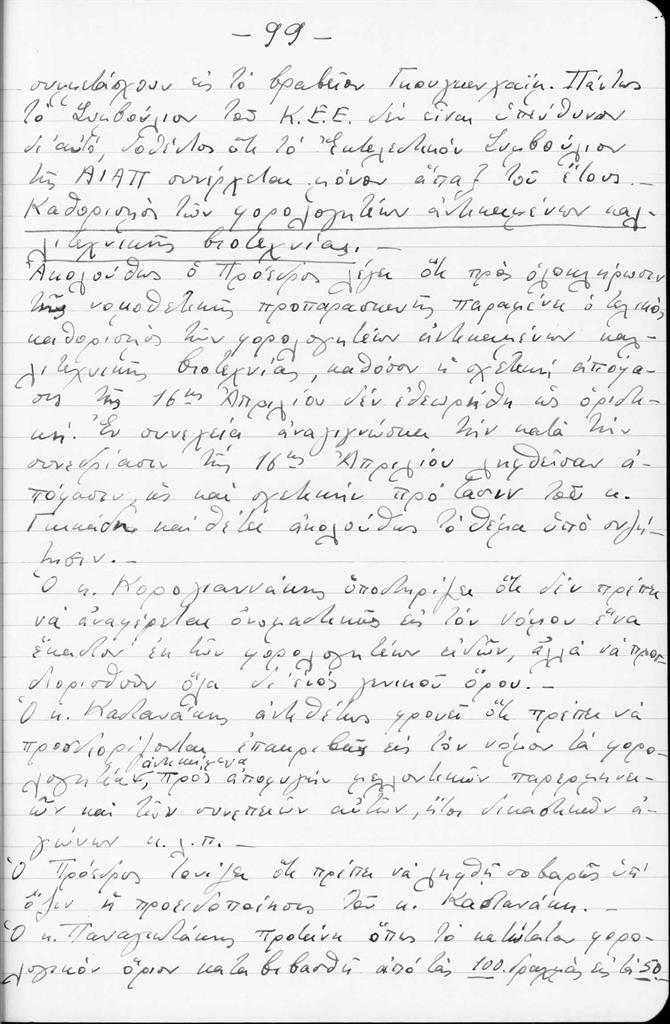 - 99 -
συμμετάσχουν εἰς τὸ βραβεῖον Γκουγκενχάϊμ. Πάντως
τὸ Συμβούλιον τοῦ Κ.Ε.Ε. δὲν εἶναι ὑπεύθυνον
δι' αὐτό, δοθέντος ὅτι τὸ Ἐκτελεστικὸν Συμβούλιον
τῆς ΑΙΑΠ συνέρχεται μόνον ἅπαξ τοῦ ἔτους. -
Καθορισμὸς τῶν φορολογητέων ἀντικειμένων καλ-
λιτεχνικῆς βιοτεχνίας. -
Ἀκολούθως ὁ Πρόεδρος λέγει ὅτι πρὸς ὁλοκλήρωσιν
τῆς νομοθετικῆς προπαρασκευῆς παραμένει ὁ τελικὸς
καθορισμὸς τῶν φορολογητέων ἀντικειμένων καλ-
λιτεχνικῆς βιοτεχνίας, καθόσον ἡ σχετικὴ ἀπόφα-
σις τῆς 16ης Ἀπριλίου δὲν ἐθεωρήθη ὡς ὁριστι-
κή. Ἐν συνεχείᾳ ἀναγιγνώσκει τὴν κατὰ τὴν
συνεδρίασιν τῆς 16ης Ἀπριλίου ληφθεῖσαν ἀ-
πόφασιν ὡς καὶ σχετικὴν πρότασιν τοῦ κ.
καὶ θέτει ἀκολούθως τὸ θέμα ὑπὸ συζή-
τησιν. -
Ὁ κ. Κορογιαννάκης ὑποστηρίζει ὅτι δὲν πρέπει
νὰ ἀναφέρεται ὀνομαστικῶς εἰς τὸν νόμον ἕνα
ἕκαστον ἐκ τῶν φορολογητέων εἰδῶν, ἀλλὰ νὰ προσ-
διορισθοῦν ὅλα δι' ἑνὸς γενικοῦ ὅρου. -
Ὁ κ. Καστανάκης ἀντιθέτως φρονεῖ ὅτι πρέπει νὰ
προσδιορίζονται ἐπακριβῶς εἰς τὸν νόμον τὰ φορο-
λογητέα ἀντικείμενα, πρὸς ἀποφυγὴν μελλοντικῶν παρερμηνει-
ῶν καὶ τῶν συνεπειῶν αὐτῶν, ἤτοι δικαστικῶν ἀ-
γώνων κ.λ.π. -
Ὁ Πρόεδρος τονίζει ὅτι πρέπει νὰ ληφθῇ σοβαρῶς ὑπ'
ὄψιν ἡ προειδοποίησις τοῦ κ. Καστανάκη. -
Ὁ κ. Παναγιωτάκης προτείνει ὅπως τὸ κατώτατον φορο-
λογικὸν ὅριον καταβιβασθῇ ἀπὸ τὰς 100 δραχμὰς εἰς τὰς 50 -